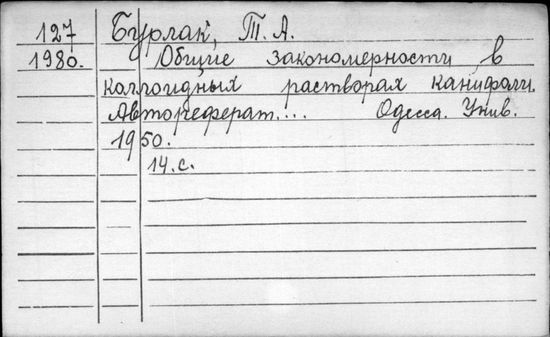 127 Бурлак, Т. А.
1980. Общие закономерности в
коллоидных растворах канифоли.
Автореферат.... Одесса. Унив.
1950.
14.с.